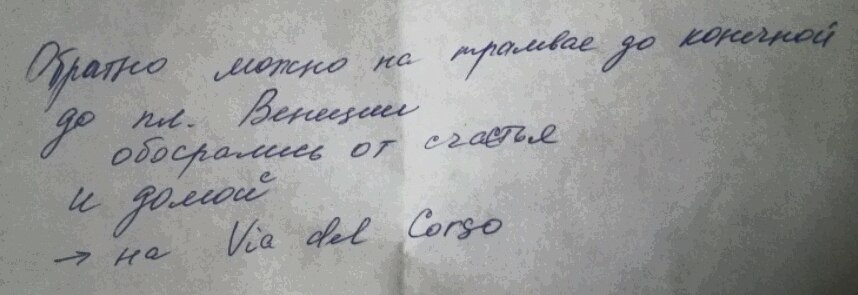 Обратно можно на трамвае до конечной
до пл. Венеции
обосрались от счастья
и домой
→ на Via del Corso